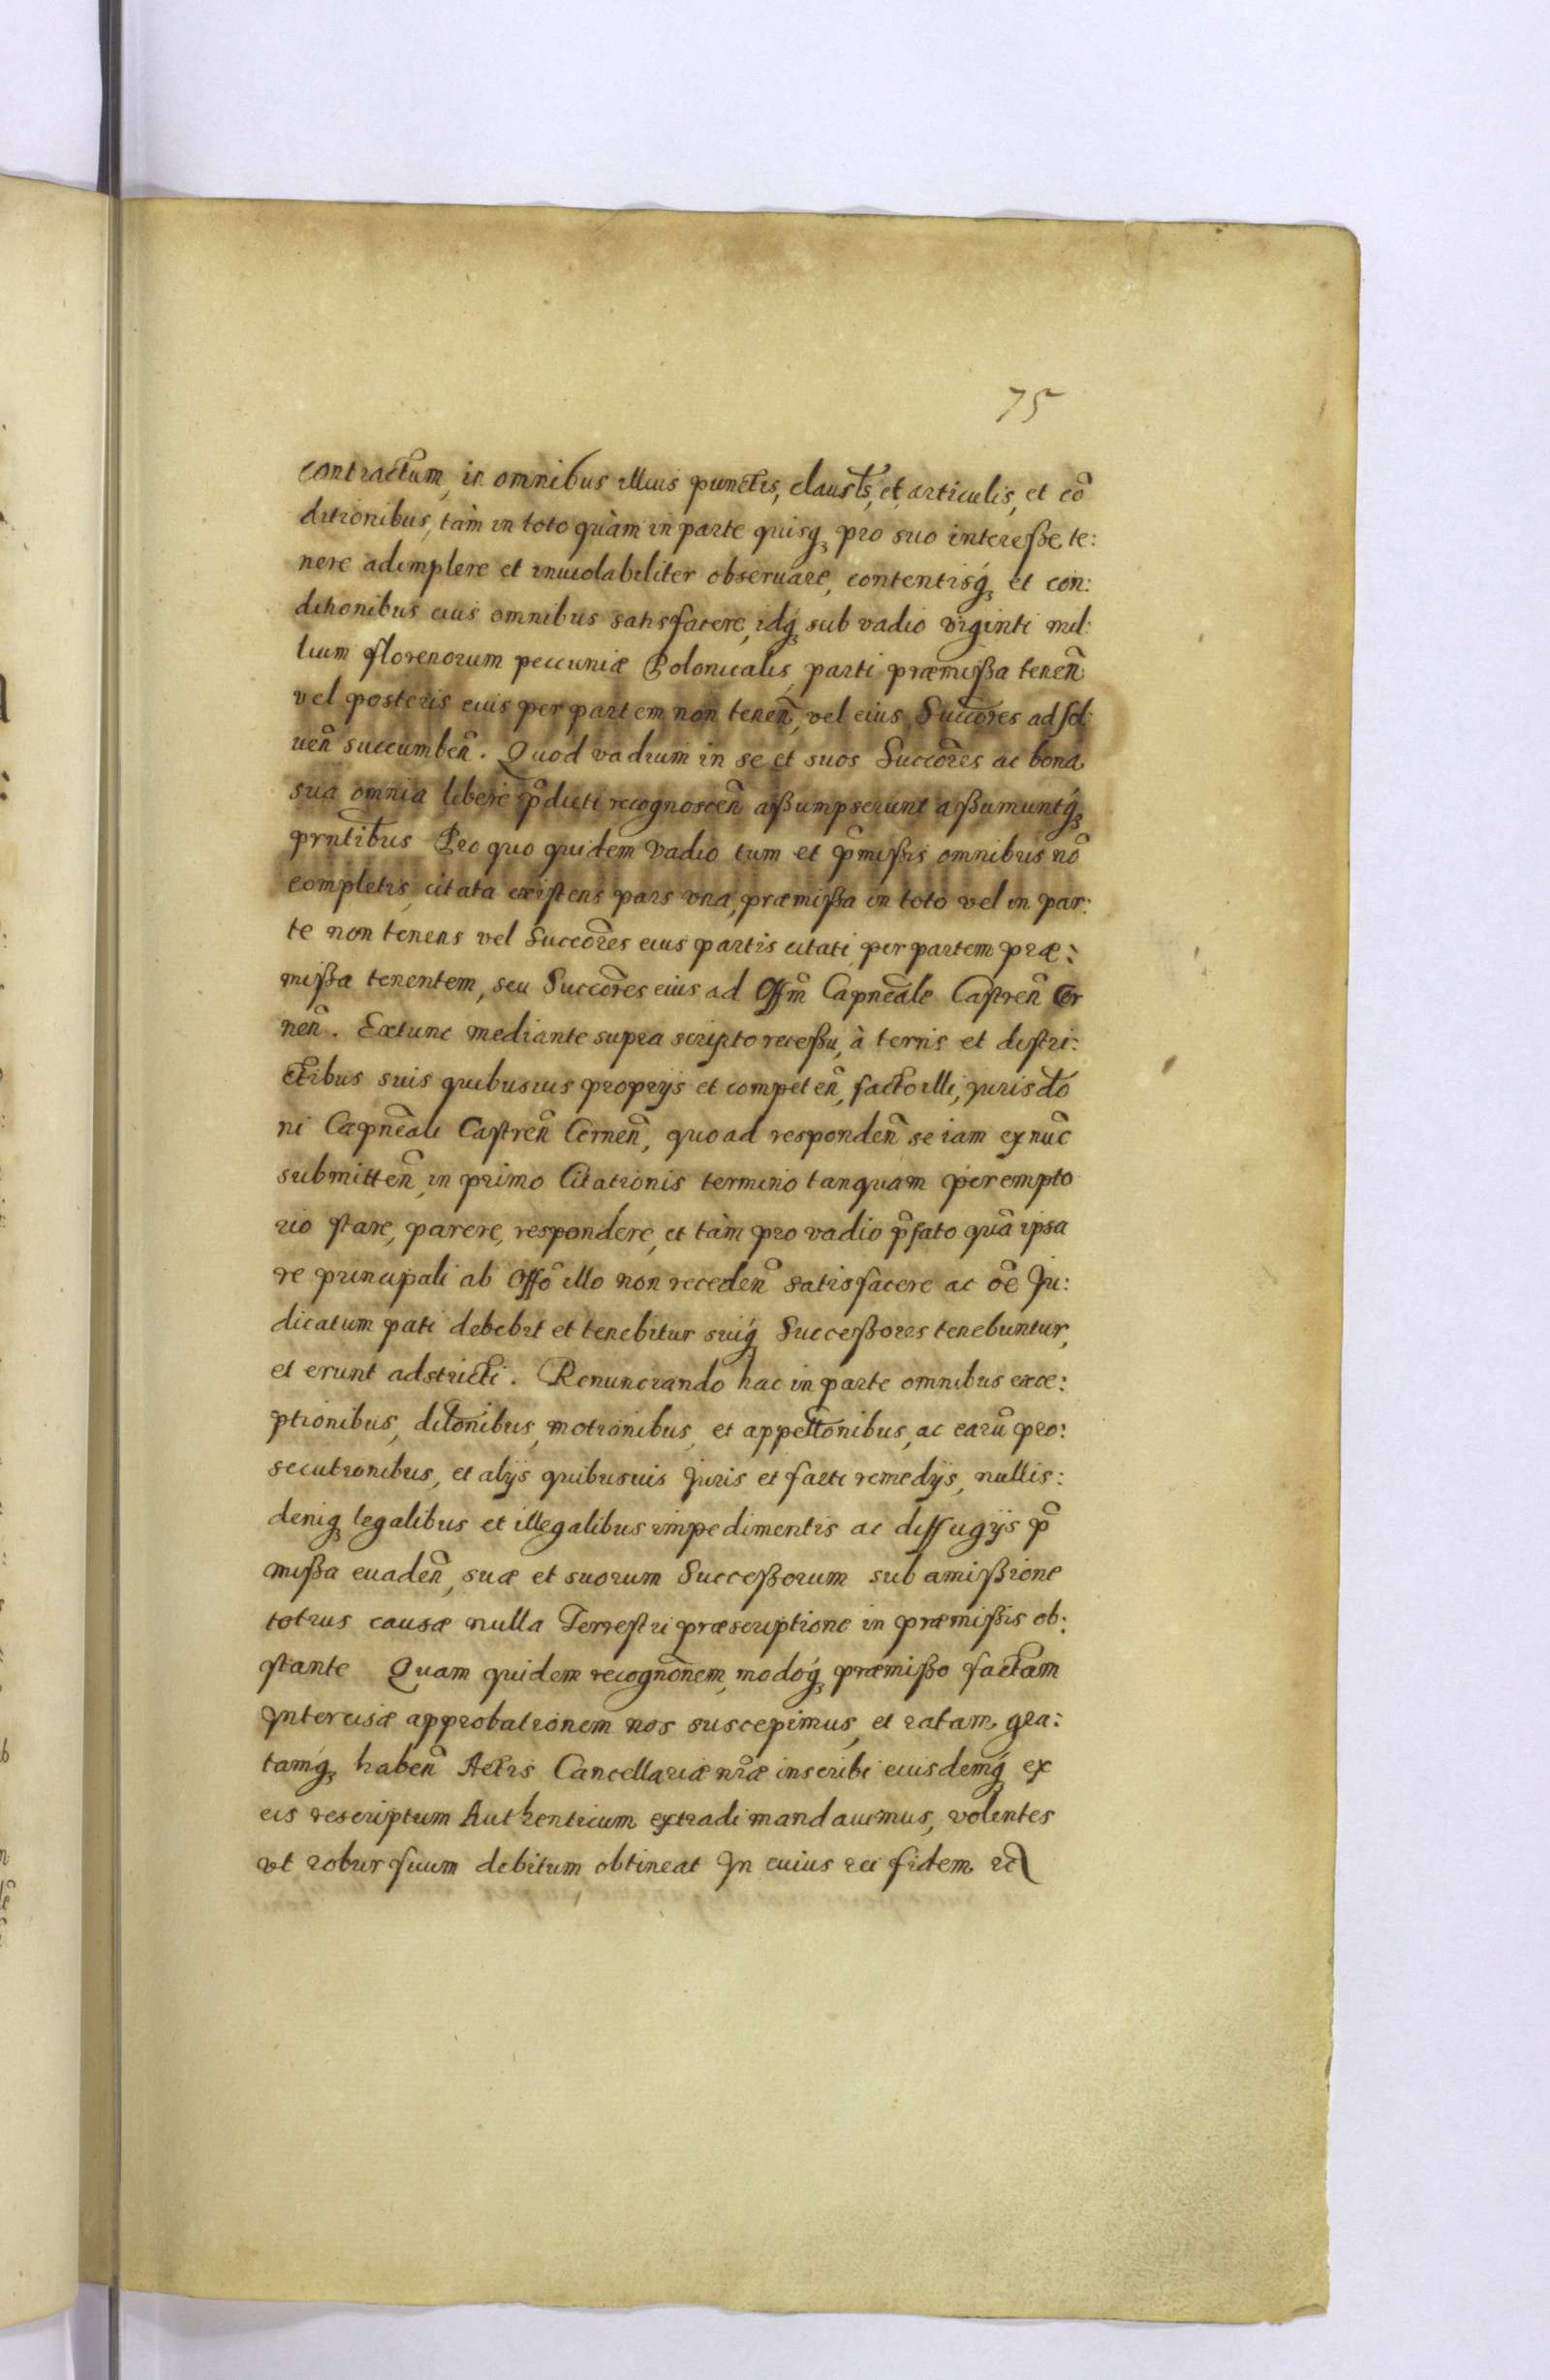 75
contractum, in omnibus illius punctis, clausłs, et articulis, et cō
ditionibus, tàm in toto quàm in parte quisq; pro suo interesse te:
nere adimplere et inuiolabiliter obseruare, contentisq́; et con:
ditionibus eius omnibus satisfacere, idq́; sub vadio viginti mil:
lium florenorum pecuniæ Polonicalis, parti præmissa teneñ
vel posteris eius per partem non teneñ, vel eius Succōres ad sol:
ueñ succumbeñ. Quod vadium in se et suos Succōres ac bona
sua omnia liberè p̃dicti recognosceñ assumpserunt assumuntq́;
prntibus Pro quo quidem vadio tum et p̃missis omnibus nō
completis, citata existens pars vna, præmissa in toto vel in par:
te non tenens vel Succōres eius partis citati, per partem præ:
missa tenentem, seu Succōres eius ad Offm̃ Capneāle Castreñ Cer
neñ. Extunc mediante supra scripto recessu, à terris et distri:
ctibus suis quibusuis proprijs et competeñ, facto illi, jurisdō
ni Capneāli Castreñ Cerneñ, quo ad respondeñ se iam ex nūc
submitteñ, in primo Citationis termino tanquam perempto
rio stare, parere, respondere, et tàm pro vadio p̃fato quā ipsa
re principali ab Offō illo non recedeñ satisfacere ac oē Ju:
dicatum pati debebit et tenebitur suiq́ Successores tenebuntur,
et erunt adstricti. Renunciando hac in parte omnibus exce:
ptionibus, dilōnibus, motionibus, et appellōnibus, ac earū pro:
secutionibus, et alijs quibusuis Juris et facti remedijs, nullis:
deniq; legalibus et illegalibus impedimentis ac diffugijs p̃
missa euadeñ, suæ et suorum Successorum sub amissione
totius causæ nulla Terrestri præscriptione in præmissis ob:
stante Quam quidem recognōnem, modoq́; præmisso factam
Intercisæ approbationem nos suscepimus, et ratam, gra:
tamq́; habeñ Actis Cancellariæ nr̃æ inscribi eiusdemq́; ex
eis rescriptum Authenticum extradi mandauimus, volentes
vt robur suum debitum obtineat In cuius rei fidem rc̃